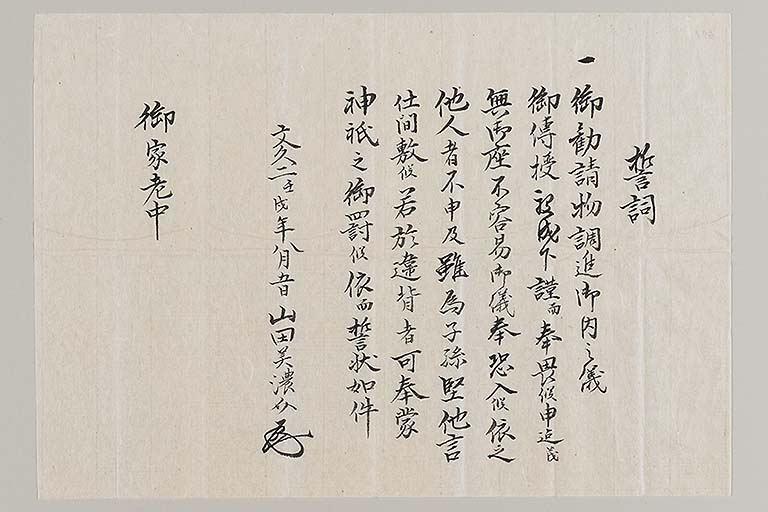 誓詞
一 御勧請物調進御内之儀
御傳授被成下謹而奉畏候申迄茂
無御座不容易御儀奉恐入候依之
他人者不申及雖為子孫堅他言
仕間敷候若於違背者可奉蒙
神祇之御罸候依而誓状如件
文久二壬戌年八月 山田美濃介
御家老中